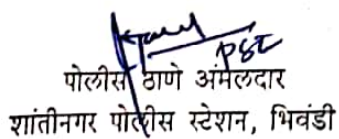 PSI
पोलीस ठाणे अंमलदार
शांतीनगर पोलीस स्टेशन, भिवंडी